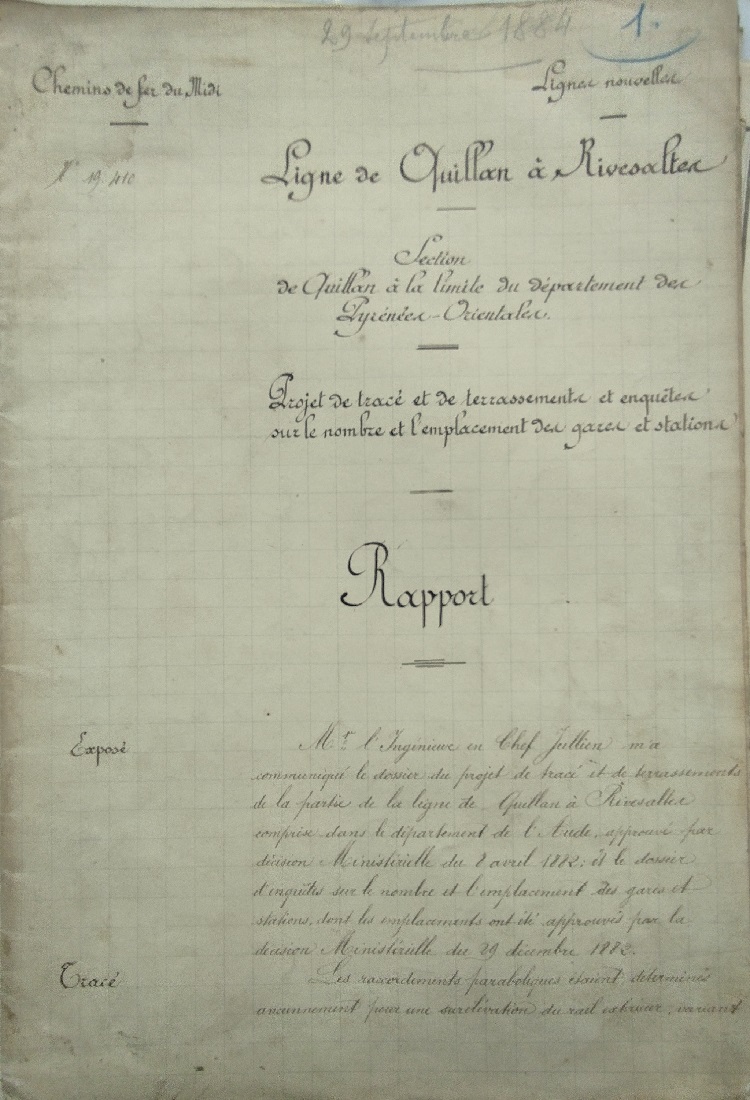 29 Septembre 1884
1.
Chemins de fer du Midi
Lignes nouvelles
N° 19.410
Ligne de Quillan à Rivesaltes
Section
de Quillan à la limite du département des
Pyrénées-Orientales.
Projet de tracé et de terrassements et enquêtes
sur le nombre et l'emplacement des gares et stations
Rapport
Exposé
Mr l'Ingénieur en Chef Jullien m'a
communiqué le dossier du projet de tracé et de terrassements
de la partie de la ligne de Quillan à Rivesaltes
comprise dans le département de l'Aude, approuvé par
décision Ministérielle du 8 avril 1882; et le dossier
d'enquêtes sur le nombre et l'emplacement des gares et
stations, dont les emplacements ont été approuvés par la
décision Ministérielle du 29 décembre 1882.
Tracé
Les raccordements paraboliques étaient déterminés
anciennement pour une surélévation du rail extérieur, variant